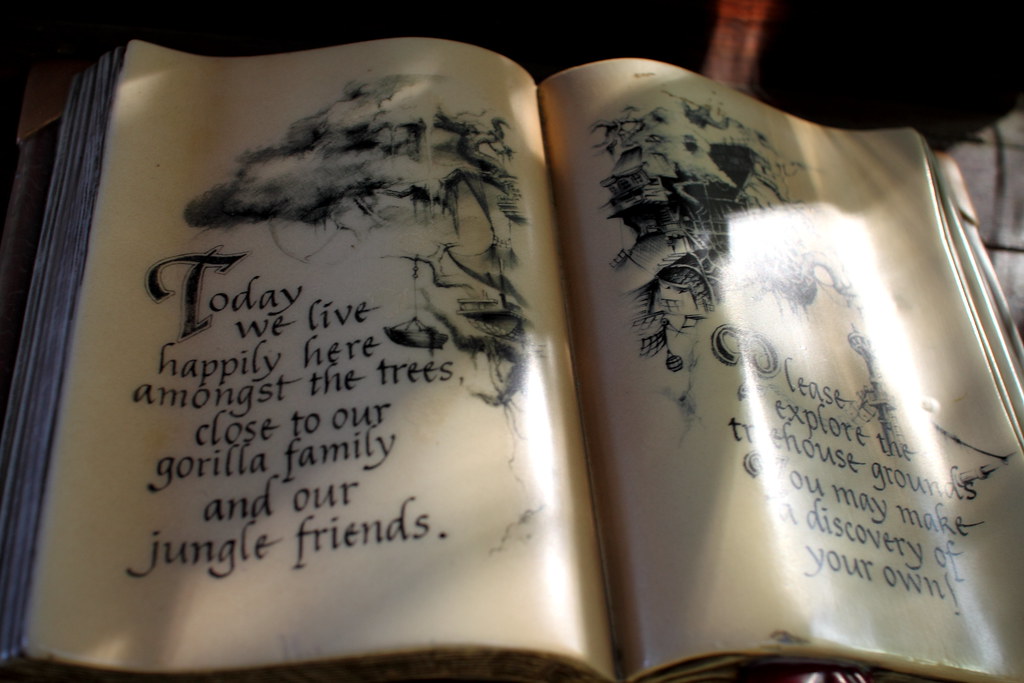 Today
we live
happily here
amongst the trees,
close to our
gorilla family
and our
jungle friends.
Please
explore the
treehouse grounds
You may make
a discovery of
your own!